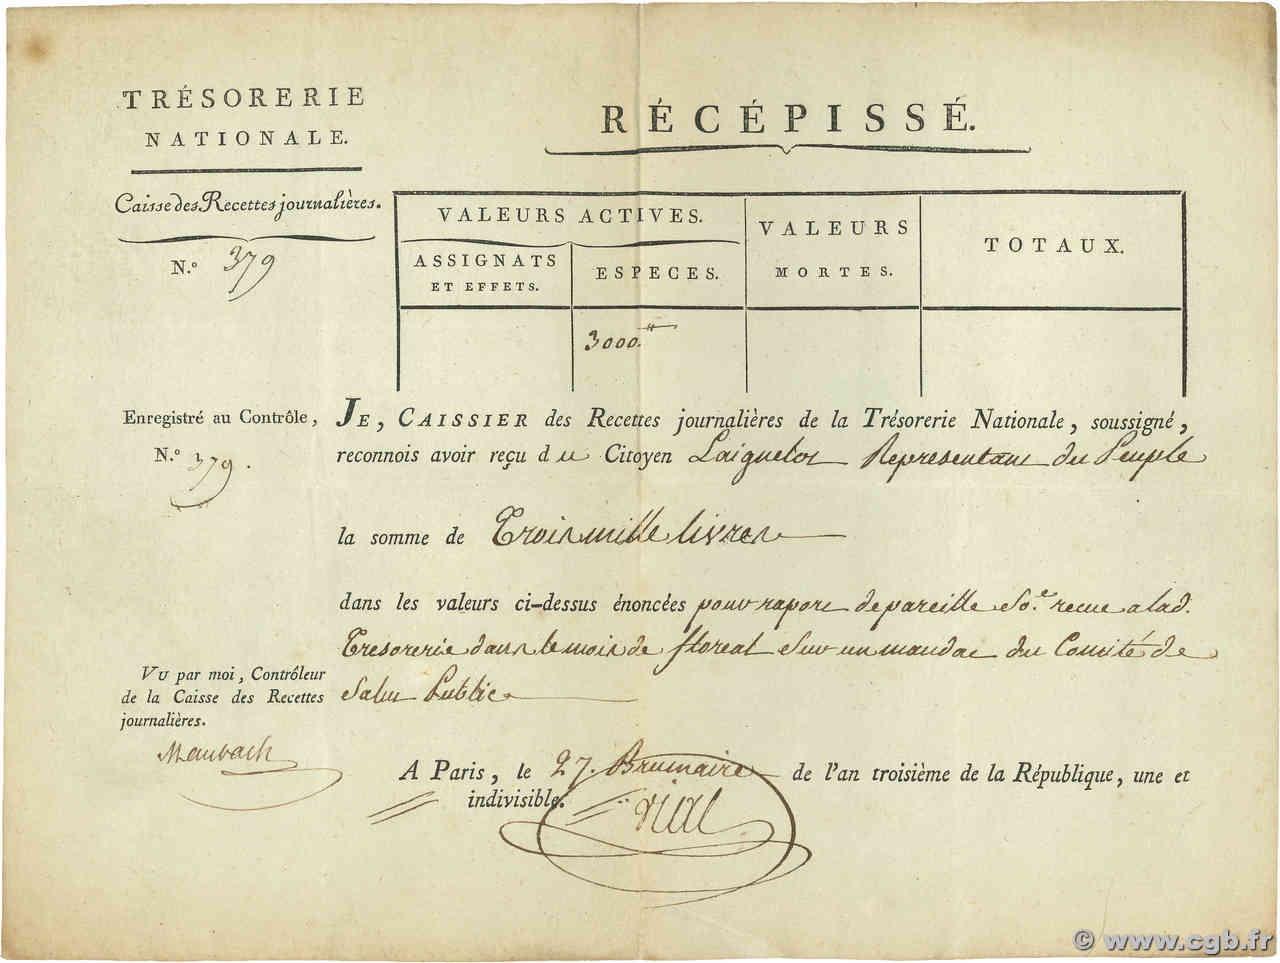 TRÉSORERIE
NATIONALE.
RÉCÉPISSÉ.
Caisse des Recettes journalières.
N.° 379
VALEURS ACTIVES.
VALEURS
MORTES.
TOTAUX.
ASSIGNATS
ET EFFETS.
ESPECES.
3000.
Enregistré au Contrôle,
N.° 379.
JE, CAISSIER des Recettes journalières de la Trésorerie Nationale, soussigné,
reconnois avoir reçu du Citoyen Laiguelot Representant du Peuple
la somme de Trois mille livres
dans les valeurs ci-dessus énoncées pour raport de pareille So.e recue a lad.
Tresorerie dans le mois de floreal Sur un mandat du Comité de
Salut Public
VU par moi, Contrôleur
de la Caisse des Recettes
journalières.
Maubach
A Paris, le 27. Brumaire de l'an troisième de la République, une et
indivisible.
Vial
© www.cgb.fr